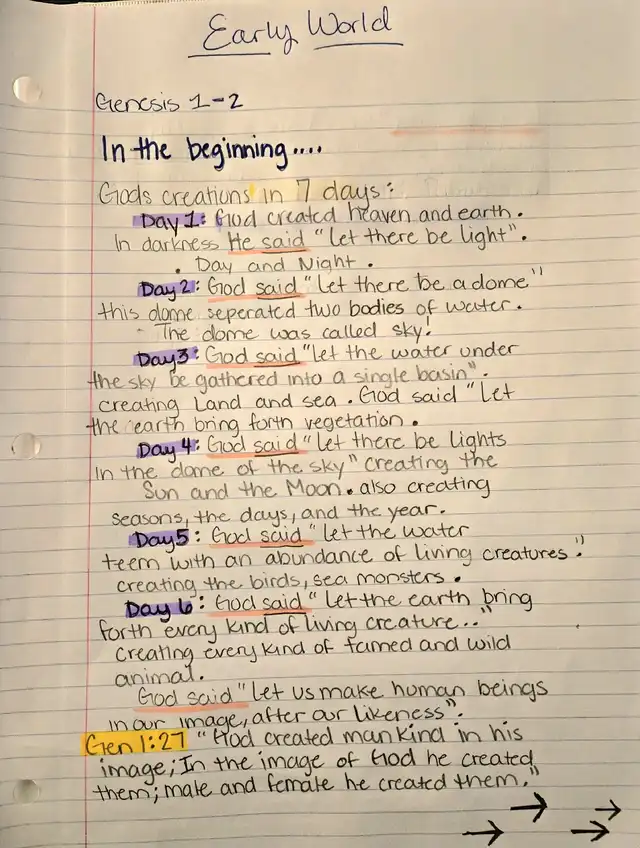 Early World
Genesis 1-2
In the beginning....
Gods creations in 7 days:
Day 1: God created heaven and earth.
In darkness He said "let there be light".
. Day and Night.
Day 2: God said "let there be a dome"
this dome seperated two bodies of water.
- The dome was called sky!
Day 3: God said "let the water under
the sky be gathered into a single basin".
creating Land and sea. God said "Let
the earth bring forth vegetation.
Day 4: God said "let there be lights
In the dome of the sky" creating the
Sun and the Moon. also creating
seasons, the days, and the year.
Day 5: God said "let the water
teem with an abundance of living creatures."
creating the birds, sea monsters.
Day 6: God said "Let the earth bring
forth every kind of living creature..."
creating every kind of tamed and wild
animal.
God said "Let us make human beings
in our image, after our likeness".
Gen 1:27 "God created mankind in his
image; In the image of God he created
them; male and female he created them."